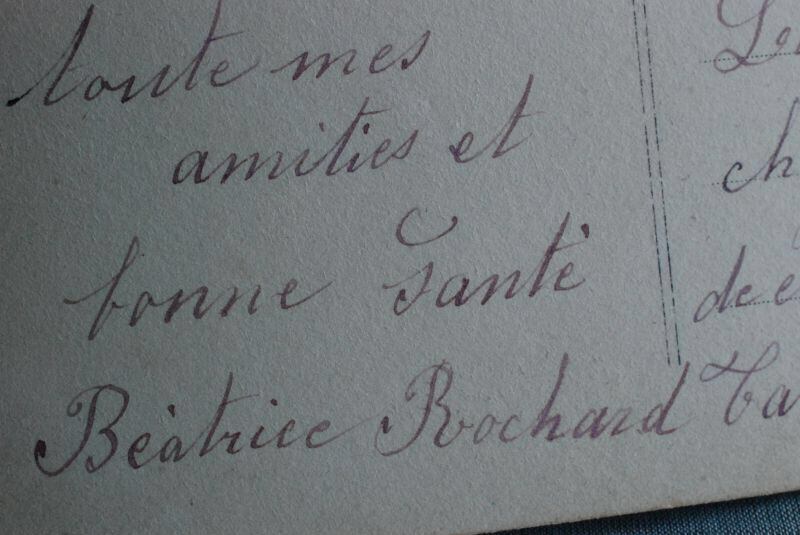 toute mes
amitiés et
bonne Santè
Bèatrice Rochard
ch
de